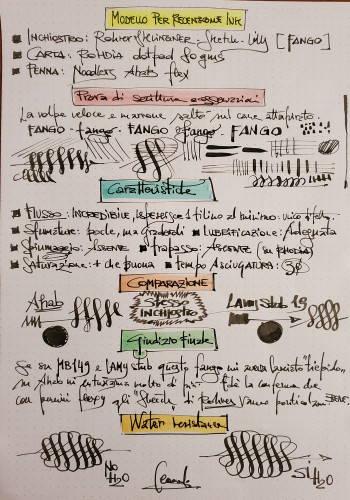 MODELLO PER RECENSIONE INK
INCHIOSTRO: Rohrer & Klingner - Sketch - Lilly [FANGO]
CARTA: RoHDia dotPad 80 gms
PENNA: Noodlers Ahab flex
Prova di scrittura e osservazioni
La volpe veloce e marrone saltò sul cane
FANGO - fango - FANGO - fango - FANGO
Caratteristiche
FLUSSO: INCREDIBILE,
Sfumature: poche, ma LUBRIFICAZIONE: Adeguata
Spiumaggio: ASSENTE Trapasso: ASSENTE (su RHODIA)
SATURAZIONE: + che buona TEMPO ASCIUGATURA: 30
COMPARAZIONE
Ahab STESSO INCHIOSTRO LAMY Stub 1.9
Giudizio finale
Se su MB149 e LAMY stub questo fango mi aveva lasciato "tiepido"
su Ahab mi entusiasma molto di più. È la conferma che
con pennini flessy gli "Sketch" di Rohrer vanno BENE
Water resistance
No H2O
Sì H2O